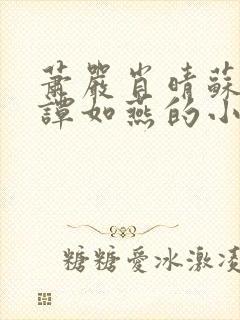 蕭嚴肖晴蘇
譚如燕的小
糖糖愛冰激凌